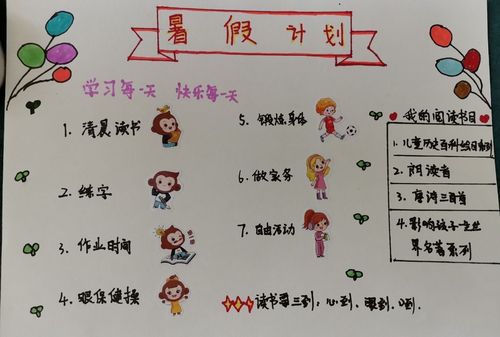 暑假计划
学习每一天 快乐每一天
1. 清晨读书
2. 练字
3. 作业时间
4. 眼保健操
5. 锻炼身体
6. 做家务
7. 自由活动
我的阅读书目
1. 儿童历史百科绘本系列
2. 朗读者
3. 唐诗三百首
4. 影响孩子一生世
界名著系列
读书要三到：心到、眼到、口到.